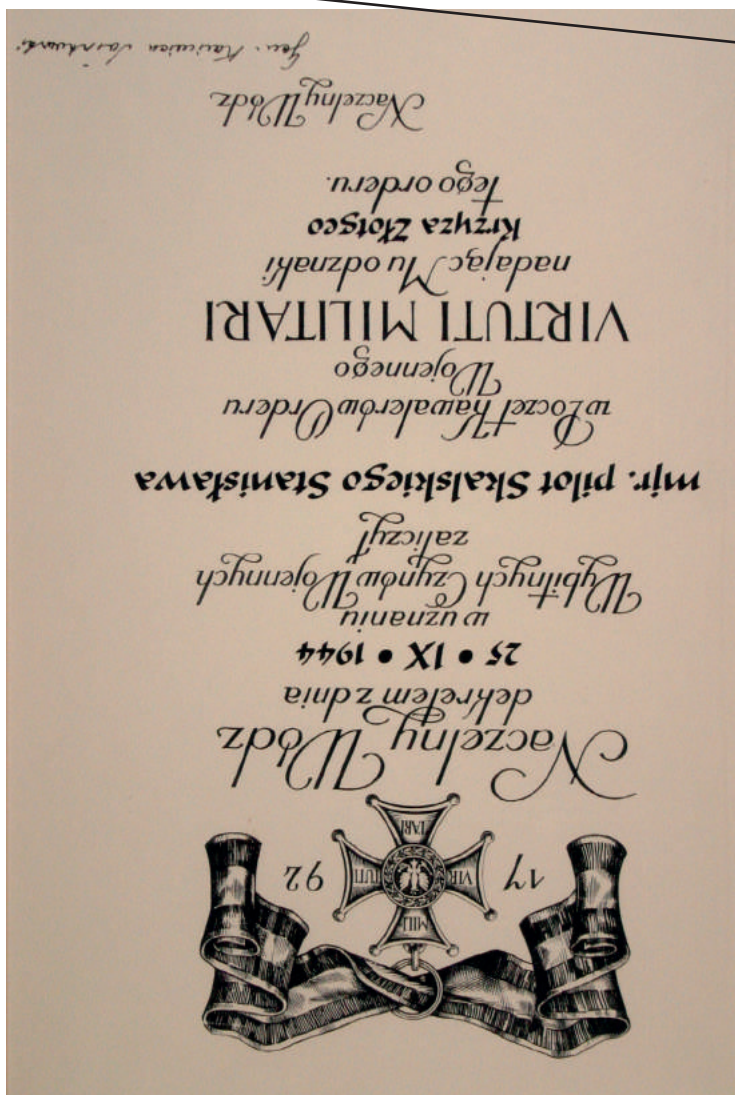 MILI
17 VIR TUTI 92
TARI
Naczelny Wódz
dekretem z dnia
25 • IX • 1944
w uznaniu
Wybitnych Czynów Wojennych
zaliczył
mjr. pilot Skalskiego Stanisława
w Poczet Kawalerów Orderu
Wojennego
VIRTUTI MILITARI
nadając Mu odznaki
Krzyża Złotgeo
tego orderu.
Naczelny Wódz
Gen.